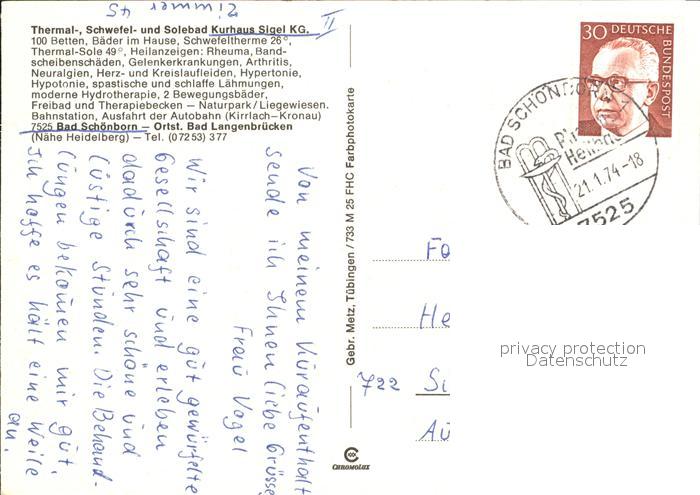 Zimmer 45
II
Thermal-, Schwefel- und Solebad Kurhaus Sigel KG.
100 Betten, Bäder im Hause, Schwefeltherme 26°,
Thermal-Sole 49°, Heilanzeigen: Rheuma, Band-
scheibenschäden, Gelenkerkrankungen, Arthritis,
Neuralgien, Herz- und Kreislaufleiden, Hypertonie,
Hypotonie, spastische und schlaffe Lähmungen,
moderne Hydrotherapie, 2 Bewegungsbäder,
Freibad und Therapiebecken – Naturpark/Liegewiesen.
Bahnstation, Ausfahrt der Autobahn (Kirrlach–Kronau)
7525 Bad Schönborn – Ortst. Bad Langenbrücken
(Nähe Heidelberg) – Tel. (07253) 377
Von meinem Kuraufenthalt
sende ich Ihnen liebe Grüsse
Frau Vogel
Wir sind eine gut gewürfelte
Gesellschaft und erleben
dadurch sehr schöne und
lustige Stunden. Die Behand-
lungen bekommen mir gut.
Ich hoffe es hält eine Weile
an.
Gebr. Metz, Tübingen / 733 M 25 FHC Farbphotokarte
CHROMOLUX
30 DEUTSCHE
BUNDESPOST
BAD SCHÖNBORN
21.1.74-18
7525
Fa
He
722 
Au
privacy protection
Datenschutz